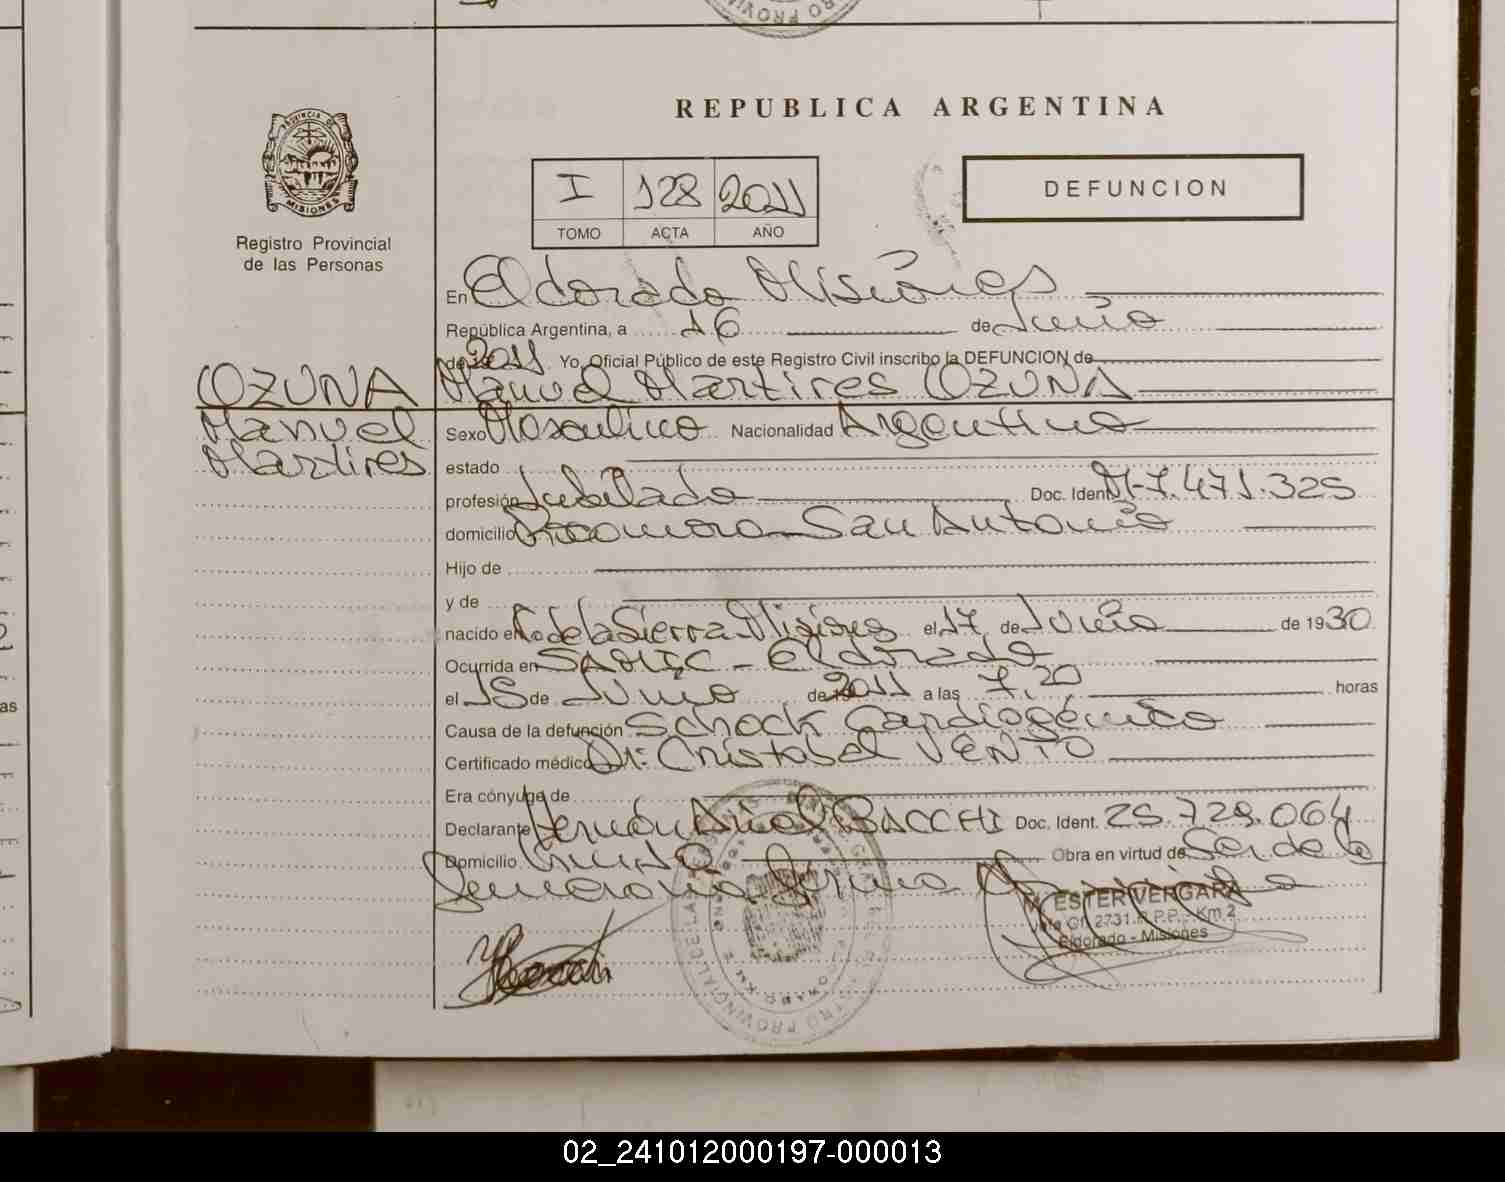 REPUBLICA ARGENTINA
PROVINCIA DE
MISIONES
Registro Provincial
de las Personas
I 128 2011
TOMO ACTA AÑO
DEFUNCION
En Eldorado Misiones
República Argentina, a 16 de Junio
de 2011 Yo, Oficial Público de este Registro Civil inscribo la DEFUNCION de
OZUNA Manuel Martires OZUNA
Manuel
Martires
Sexo Masculino Nacionalidad Argentino
estado
profesión Jubilado Doc. Ident. M-7.471.325
domicilio San Antonio
Hijo de
y de
nacido en C. de la Sierra Misiones el 17 de Junio de 1930
Ocurrida en SAMIC - Eldorado
el 15 de Junio de 2011 a las 7,20 horas
Causa de la defunción Schock Cardiogénico
Certificado médico Dr: Cristobal VENTO
Era cónyuge de
Declarante Hernán Ariel BACCHI Doc. Ident. 25.729.064
Domicilio Obra en virtud de Ser de la
Funeraria
ESTER VERGARA
Of. 2731 R.P.P. - Km 2
Eldorado - Misiones
02_241012000197-000013